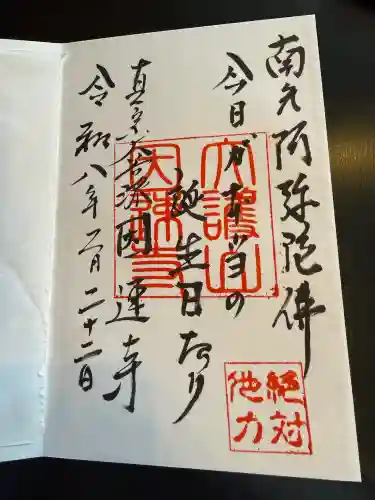 南无阿弥陀佛
今日が本当の
誕生日なり
真宗大谷派圓蓮寺
令和八年二月二十二日
絶対
他力